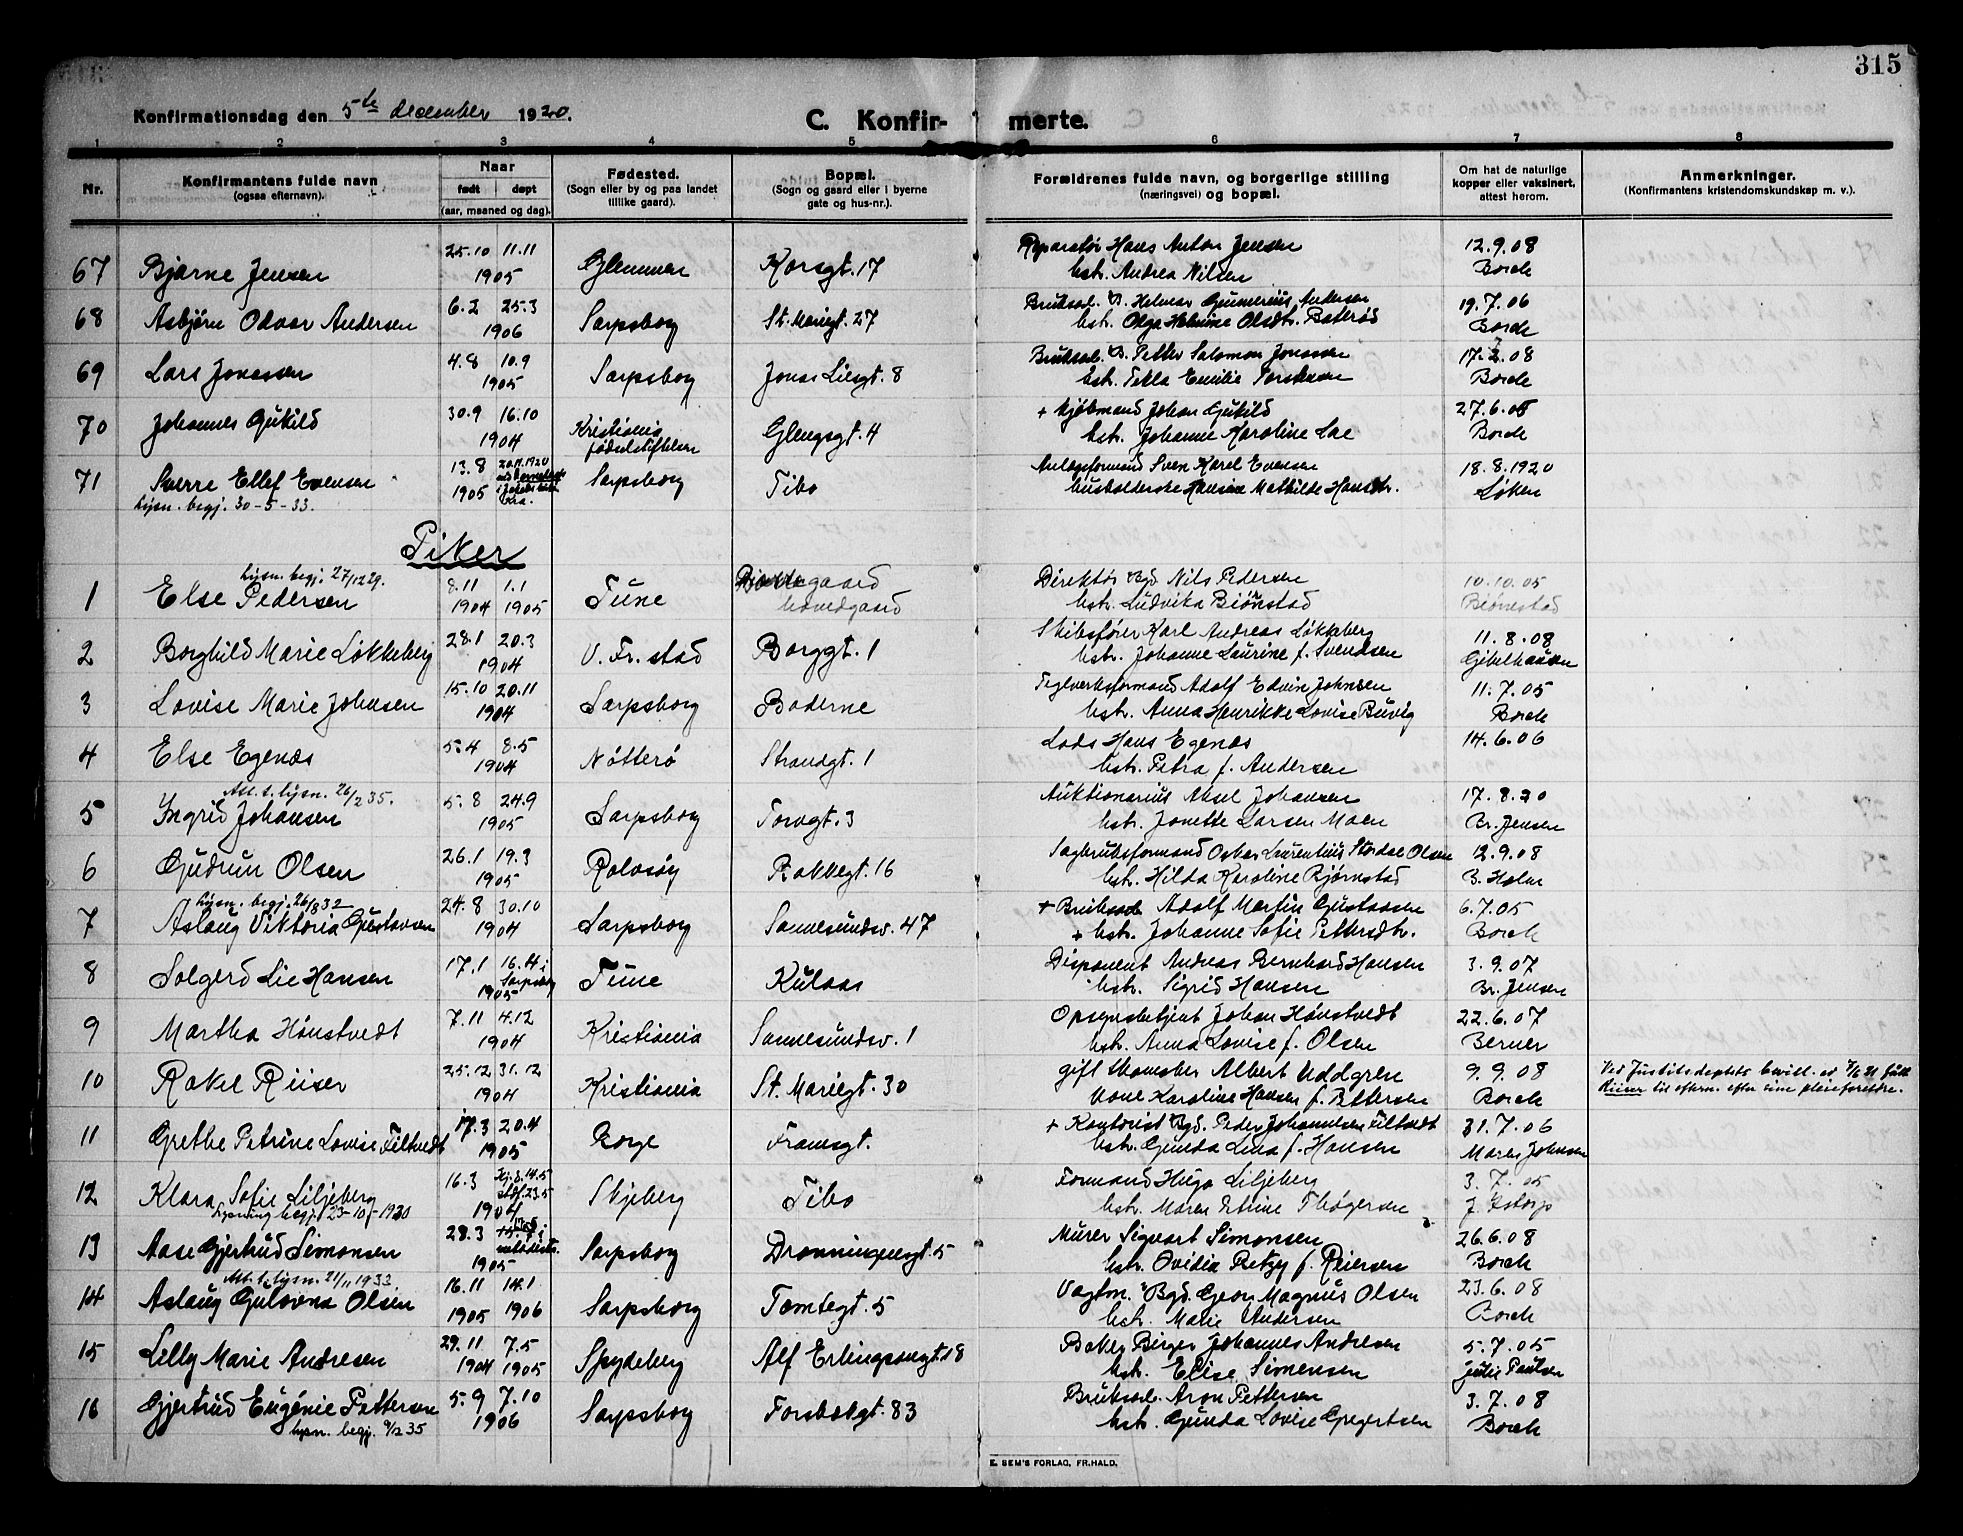 315
Konfirmationsdag den 5te december 1920.
C. Konfir- merte.
1 2 3 4 5 6 7 8
Nr.
Konfirmantens fulde navn
(ogsaa efternavn).
Naar
født døpt
(aar, maaned og dag).
Fødested.
(Sogn eller by og paa landet
tillike gaard).
Bopæl.
(Sogn og gaard eller i byerne
gate og hus-nr.).
Forældrenes fulde navn, og borgerlige stilling
(næringsvei) og bopæl.
Om hat de naturlige
kopper eller vaksinert,
attest herom.
Anmerkninger.
(Konfirmantens kristendomskundskap m. v.).
67 Bjarne Jensen 25.10 11.11 1905 Glemmen Korsgt. 17 Reparatør Hans Anton Jensen 12.9.08
hstr. Andrea Nilsen Borch
68 Asbjørn Odvar Andersen 6.2 25.3 1906 Sarpsborg St. Mariegt. 27 Bruksarb. Helmer Gunnerius Andersen 19.7.06
hstr. Olga Helmine Olsdtr. Batterød Borch
69 Lars Jonassen 4.8 10.9 1905 Sarpsborg Jonas Liesgt. 8 Bruksarb. Petter Salomon Jonassen 08
hstr. Tekla Emilie Borch
70 Johannes Gukild 30.9 16.10 1904 Kristiania fødselsstiftelse Glengsgt. 4 + Kjøbmand Johan Gukild 27.6.05
hstr. Johanne Karoline Lae Borch
71 Sverre Ellef Evensen 13.8 1905 20.11.1920 Sarpsborg Tibo Anlægsformand Sven Karel Evensen 18.8.1920
lysn. begj. 30-5-33. husholderske Hansine Mathilde Hansdtr. Løken
Piker
lysn. begj. 27/12 29.
1 Else Pedersen 8.11 1904 1.1 1905 Tune hovedgaard Direktør Nils Pedersen 10.10.05
hstr. Ludvika Biørnstad Biørnstad
2 Borghild Marie Løkkeberg 28.1 20.3 1904 V. Fr.stad Borggt. 1 Skibsfører Karl Andreas Løkkeberg 11.8.08
hstr. Johanne Laurine f. Svendsen Gibelhausen
3 Lovise Marie Johnsen 15.10 20.11 1904 Sarpsborg Boderne Teglverksformand Adolf Edvin Johnsen 11.7.05
hstr. Anna Henrikke Lovise Buvig Borch
4 Else Egenæs 5.4 8.5 1904 Nøtterø Strandgt. 1 Lods Hans Egenæs 14.6.06
hstr. Petra f. Andersen
Att. t. lysn. 26/2 35.
5 Ingrid Johansen 5.8 24.9 1905 Sarpsborg Torvgt. 3 Auktionarius Aksel Johansen 17.8.20
hstr. Jonette Larsen Moen Br. Jensen
6 Gudrun Olsen 26.1 19.3 1905 Rolvsøy Bakkegt. 16 Sagbruksformand Oskar Laurentius Stordal Olsen 12.9.08
hstr. Hilda Karoline Bjørnstad B. Holm
lysn. begj. 26/8 32
7 Aslaug Viktoria Gustavsen 24.8 30.10 1904 Sarpsborg Sannesundsv. 47 + Bruksarb Adolf Martin Gustavsen 6.7.05
+ hstr. Johanne Sofie Pettersdtr. Borch
8 Solgerd Lie Hansen 17.1 16.4 i Sarpsborg 1905 Tune Kulaas Disponent Andreas Bernhard Hansen 3.9.07
hstr. Sigrid Hansen Br. Jensen
9 Martha Hønstvedt 7.11 4.12 1904 Kristiania Sannesundsv. 1 Opsynsbetjent Johan Hønstvedt 22.6.07
hstr. Anna Lovise f. Olsen Berner
10 Rakel Riiser 25.12 31.12 1904 Kristiania St. Mariegt. 30 gift Albert Uddgren 9.9.08 Ved Justitsdeptets bevill. av
Karoline Hansen f. Pettersen Borch Riiser til eftern. efter sine pleieforeldre.
11 Grethe Petrine Lovise Filtvedt 17.3 20.4 1905 Borge Framsgt. + Kontorist Peder Johannesen Filtvedt 31.7.06
hstr. Gunda Lina f. Hansen Maren Johnsen
12 Klara Sofie Liljeberg 16.3 Hj.d. 14.5 stdf. 23.5 1904 Skjeberg Tibo Formand Hugo Liljeberg 3.7.05
Lysning begj. 23-10-1930 hstr. Maren Etrine Thøgersen
13 Aase Gjertrud Simonsen 28.3 1905 Sarpsborg Dronningensgt. 5 Murer Sigvart Simonsen 26.6.08
hstr. Ovidia Betzy f. Reiersen Borch
Att. t. lysn. 21/11 1933.
14 Aslaug Gulovna Olsen 16.11 1905 14.1 1906 Sarpsborg Tomtegt. 5 Vogtm. Georg Magnus Olsen 23.6.08
hstr. Marie Andersen Borch
15 Lilly Marie Andresen 29.11 1904 7.5 1905 Spydeberg Alf Erlingsønsgt. 18 Baker Birger Johannes Andresen 5.7.05
hstr. Elise Simensen Julie Paulsen
16 Gjertrud Eugénie Pettersen 5.9 7.10 1906 Sarpsborg Torsbækgt. 83 Bruksarb. Aron Pettersen 3.7.08
lysn. begj. 9/12 35 hstr. Gunda Lovise Gregertsen Borch
E. SEM'S FORLAG, FR.HALD.